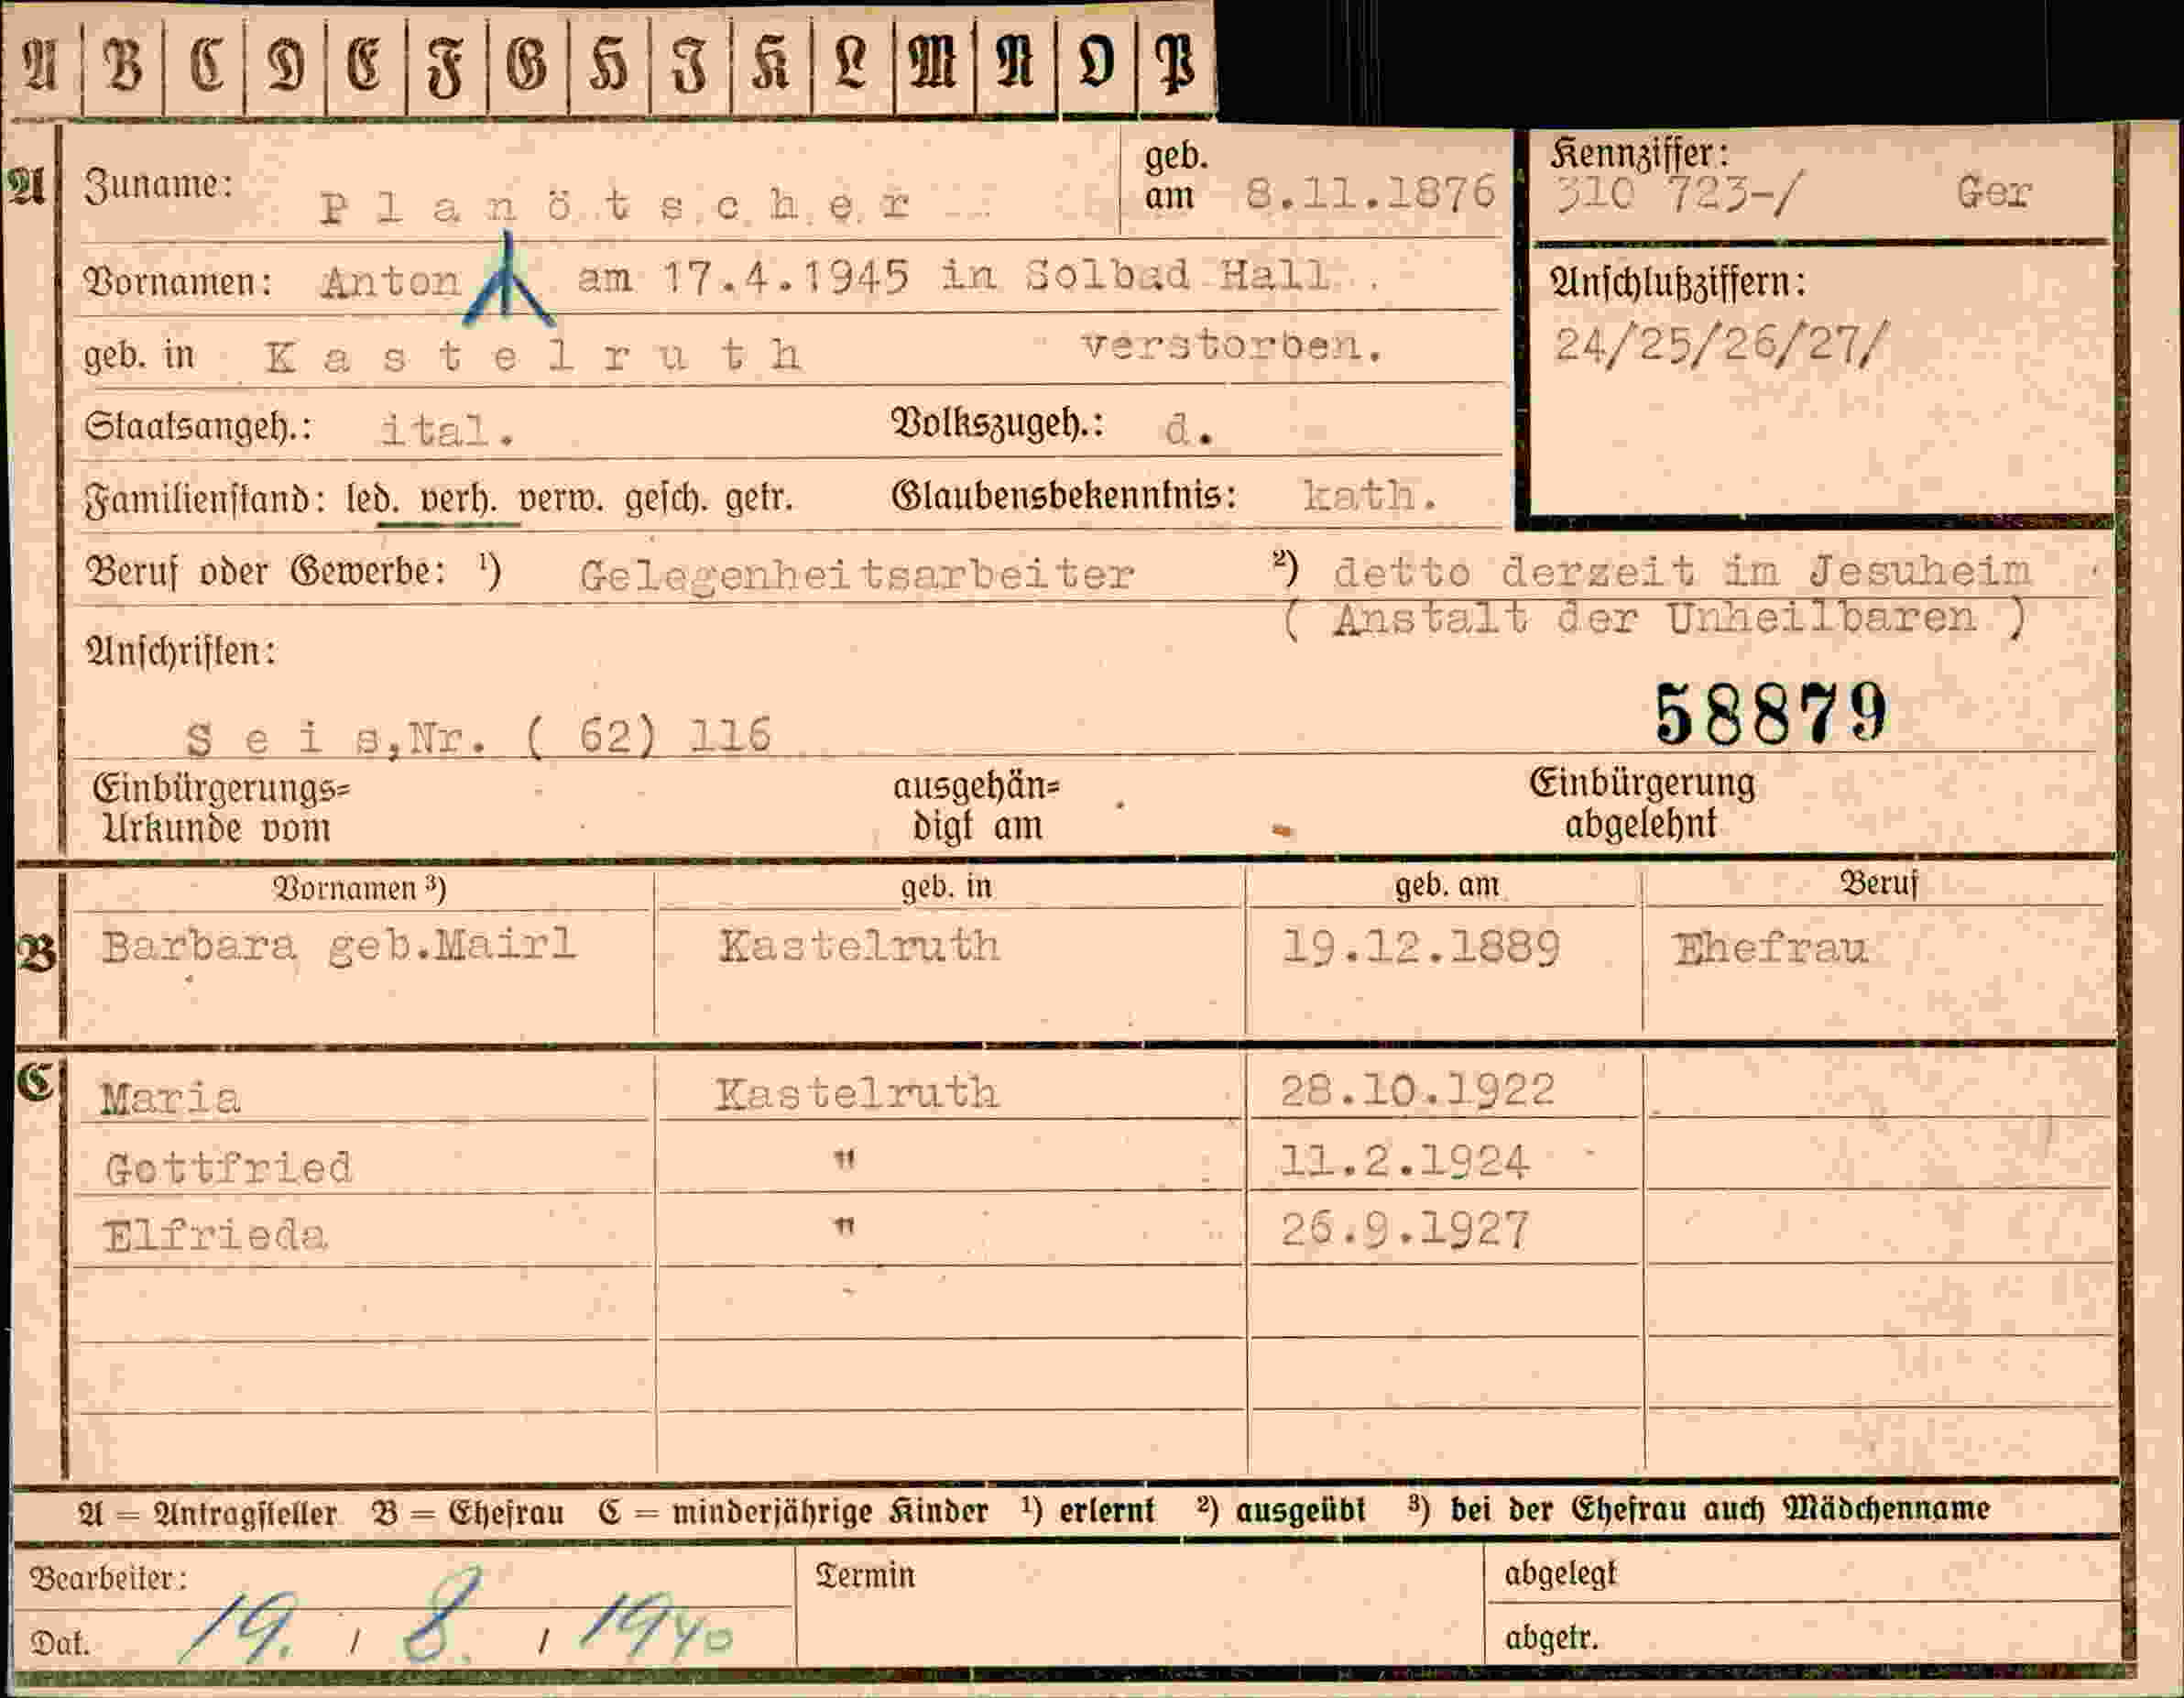 A B C D E F G H I K L M N O P
A Zuname: Planötscher geb. am 8.11.1876
Kennziffer: 310 723-/ Ger
Vornamen: Anton am 17.4.1945 in Solbad Hall
Anschlußziffern:
geb. in Kastelruth verstorben.
24/25/26/27/
Staatsangeh.: ital. Volkszugeh.: d.
Familienstand: led. verh. verw. gesch. getr. Glaubensbekenntnis: kath.
Beruf oder Gewerbe: ¹) Gelegenheitsarbeiter ²) detto derzeit im Jesuheim
( Anstalt der Unheilbaren )
Anschriften:
58879
Seis,Nr. ( 62) 116
Einbürgerungs= ausgehän= Einbürgerung
Urkunde vom digt am abgelehnt
Vornamen ³) geb. in geb. am Beruf
B Barbara geb.Mairl Kastelruth 19.12.1889 Ehefrau
C Maria Kastelruth 28.10.1922
Gottfried " 11.2.1924
Elfrieda " 26.9.1927
A = Antragsteller B = Ehefrau C = minderjährige Kinder ¹) erlernt ²) ausgeübt ³) bei der Ehefrau auch Mädchenname
Bearbeiter: Termin abgelegt
Dat. 19. / 8. / 1940 abgetr.